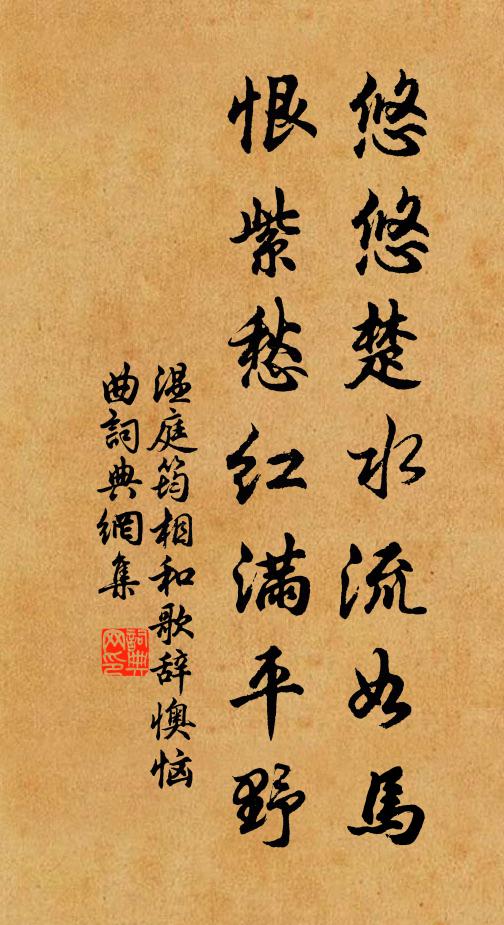 悠悠楚水流如馬
恨紫愁红满平野
温庭筠相和歌辞懊恼
曲詞典網集
詞典
网印